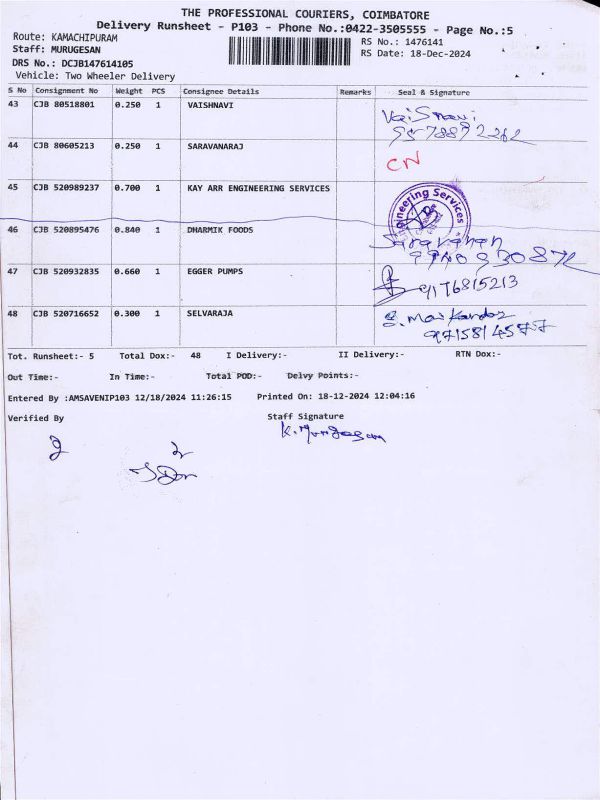 THE PROFESSIONAL COURIERS, COIMBATORE
Delivery Runsheet - P103 - Phone No.:0422-3505555 - Page No.:5
Route: KAMACHIPURAM RS No.: 1476141
Staff: MURUGESAN RS Date: 18-Dec-2024
DRS No.: DCJB147614105
Vehicle: Two Wheeler Delivery
S No Consignment No Weight PCS Consignee Details Remarks Seal & Signature
43 CJB 80518801 0.250 1 VAISHNAVI
Vaishnavi
44 CJB 80605213 0.250 1 SARAVANARAJ
CN
45 CJB 520989237 0.700 1 KAY ARR ENGINEERING SERVICES
Engineering Services
46 CJB 520895476 0.840 1 DHARMIK FOODS
Saravanan
47 CJB 520932835 0.660 1 EGGER PUMPS
9176815213
48 CJB 520716652 0.300 1 SELVARAJA
9715814577
Tot. Runsheet:- 5 Total Dox:- 48 I Delivery:- II Delivery:- RTN Dox:-
Out Time:- In Time:- Total POD:- Delvy Points:-
Entered By :AMSAVENIP103 12/18/2024 11:26:15 Printed On: 18-12-2024 12:04:16
Verified By Staff Signature
K. Murugesan